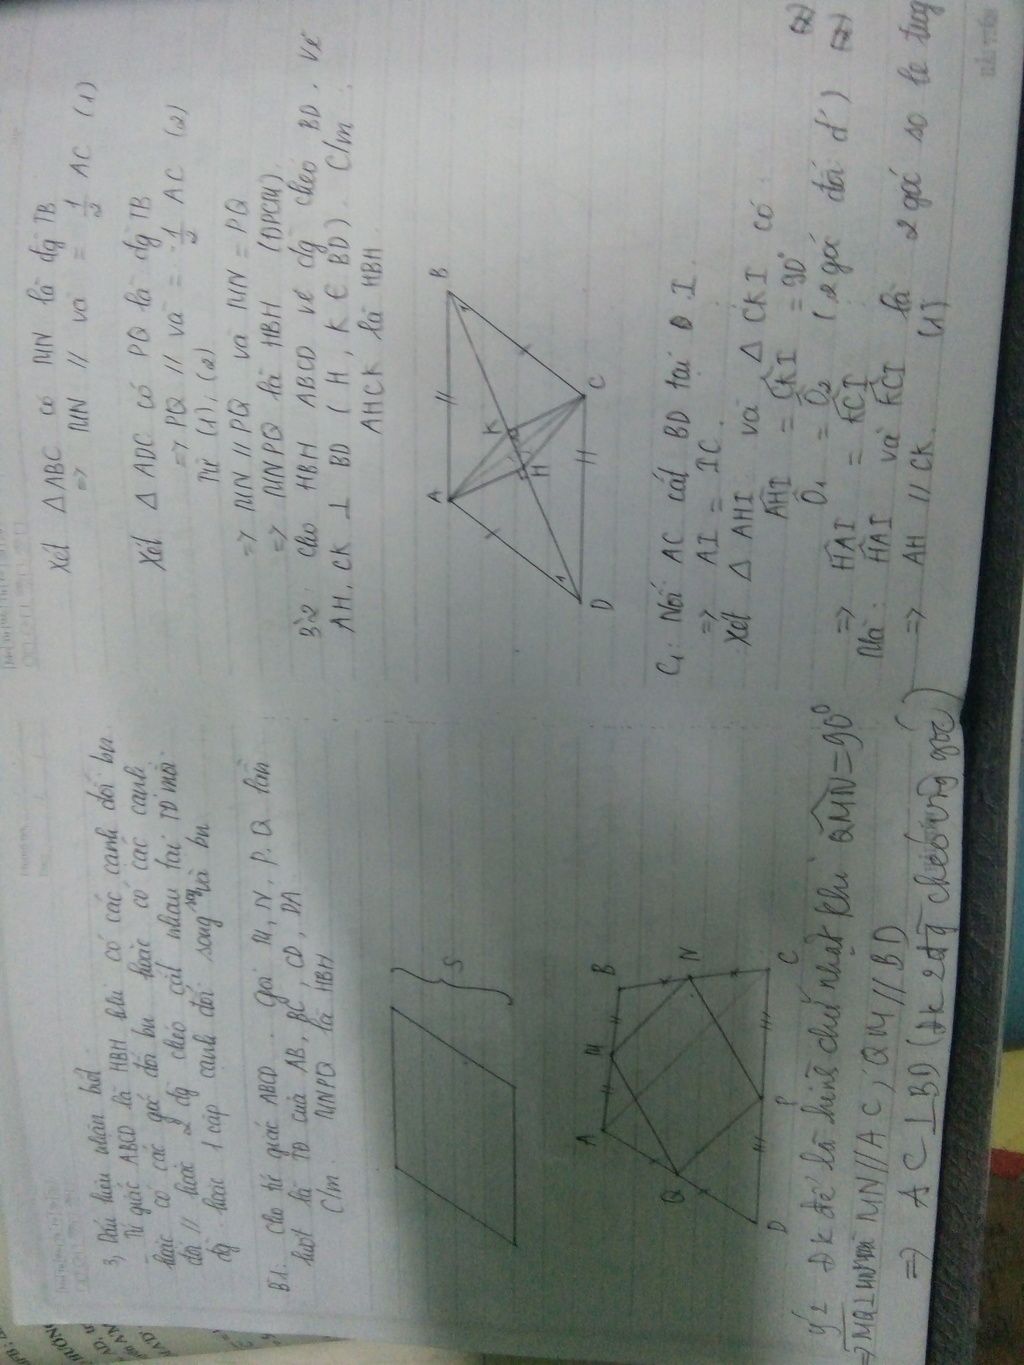 3, Dấu hiệu nhận biết.
Tứ giác ABCD là HBH khi có các cạnh đối bn.
hoặc có các góc đối bn hoặc có các cạnh
đối // hoặc 2 đg chéo cắt nhau tại TĐ mỗi
đg hoặc 1 cặp cạnh đối song và bn.
B1. Cho tứ giác ABCD. Gọi M, N, P, Q lần
lượt là TĐ của AB, BC, CD, DA
C/m MNPQ là HBH
S
A
M
B
N
Q
D
P
C
ý 2 Đk để là hình chữ nhật khi QMN = 90°
=> MQ ⊥ MN mà MN // AC, QM // BD
=> AC ⊥ BD (đk 2 đg chéo vuông góc)
Xét Δ ABC có MN là đg TB
=> MN // và = 1/2 AC (1)
Xét Δ ADC có PQ là đg TB
=> PQ // và = 1/2 AC (2)
Từ (1), (2)
=> MN // PQ và MN = PQ
=> MNPQ là HBH (DPCM)
B2. Cho HBH ABCD vẽ đg chéo BD. Vẽ
AH, CK ⊥ BD (H, K ∈ BD). C/m:
AHCK là HBH.
A
B
K
H
D
C
C1: Nối AC cắt BD tại I.
=> AI = IC.
Xét Δ AHI và Δ CKI có:
AHI = CKI = 90°
(2 góc đối đ')
=> HAI = KCI
Mà: HAI và KCI là 2 góc so le trong
=> AH // CK (1)